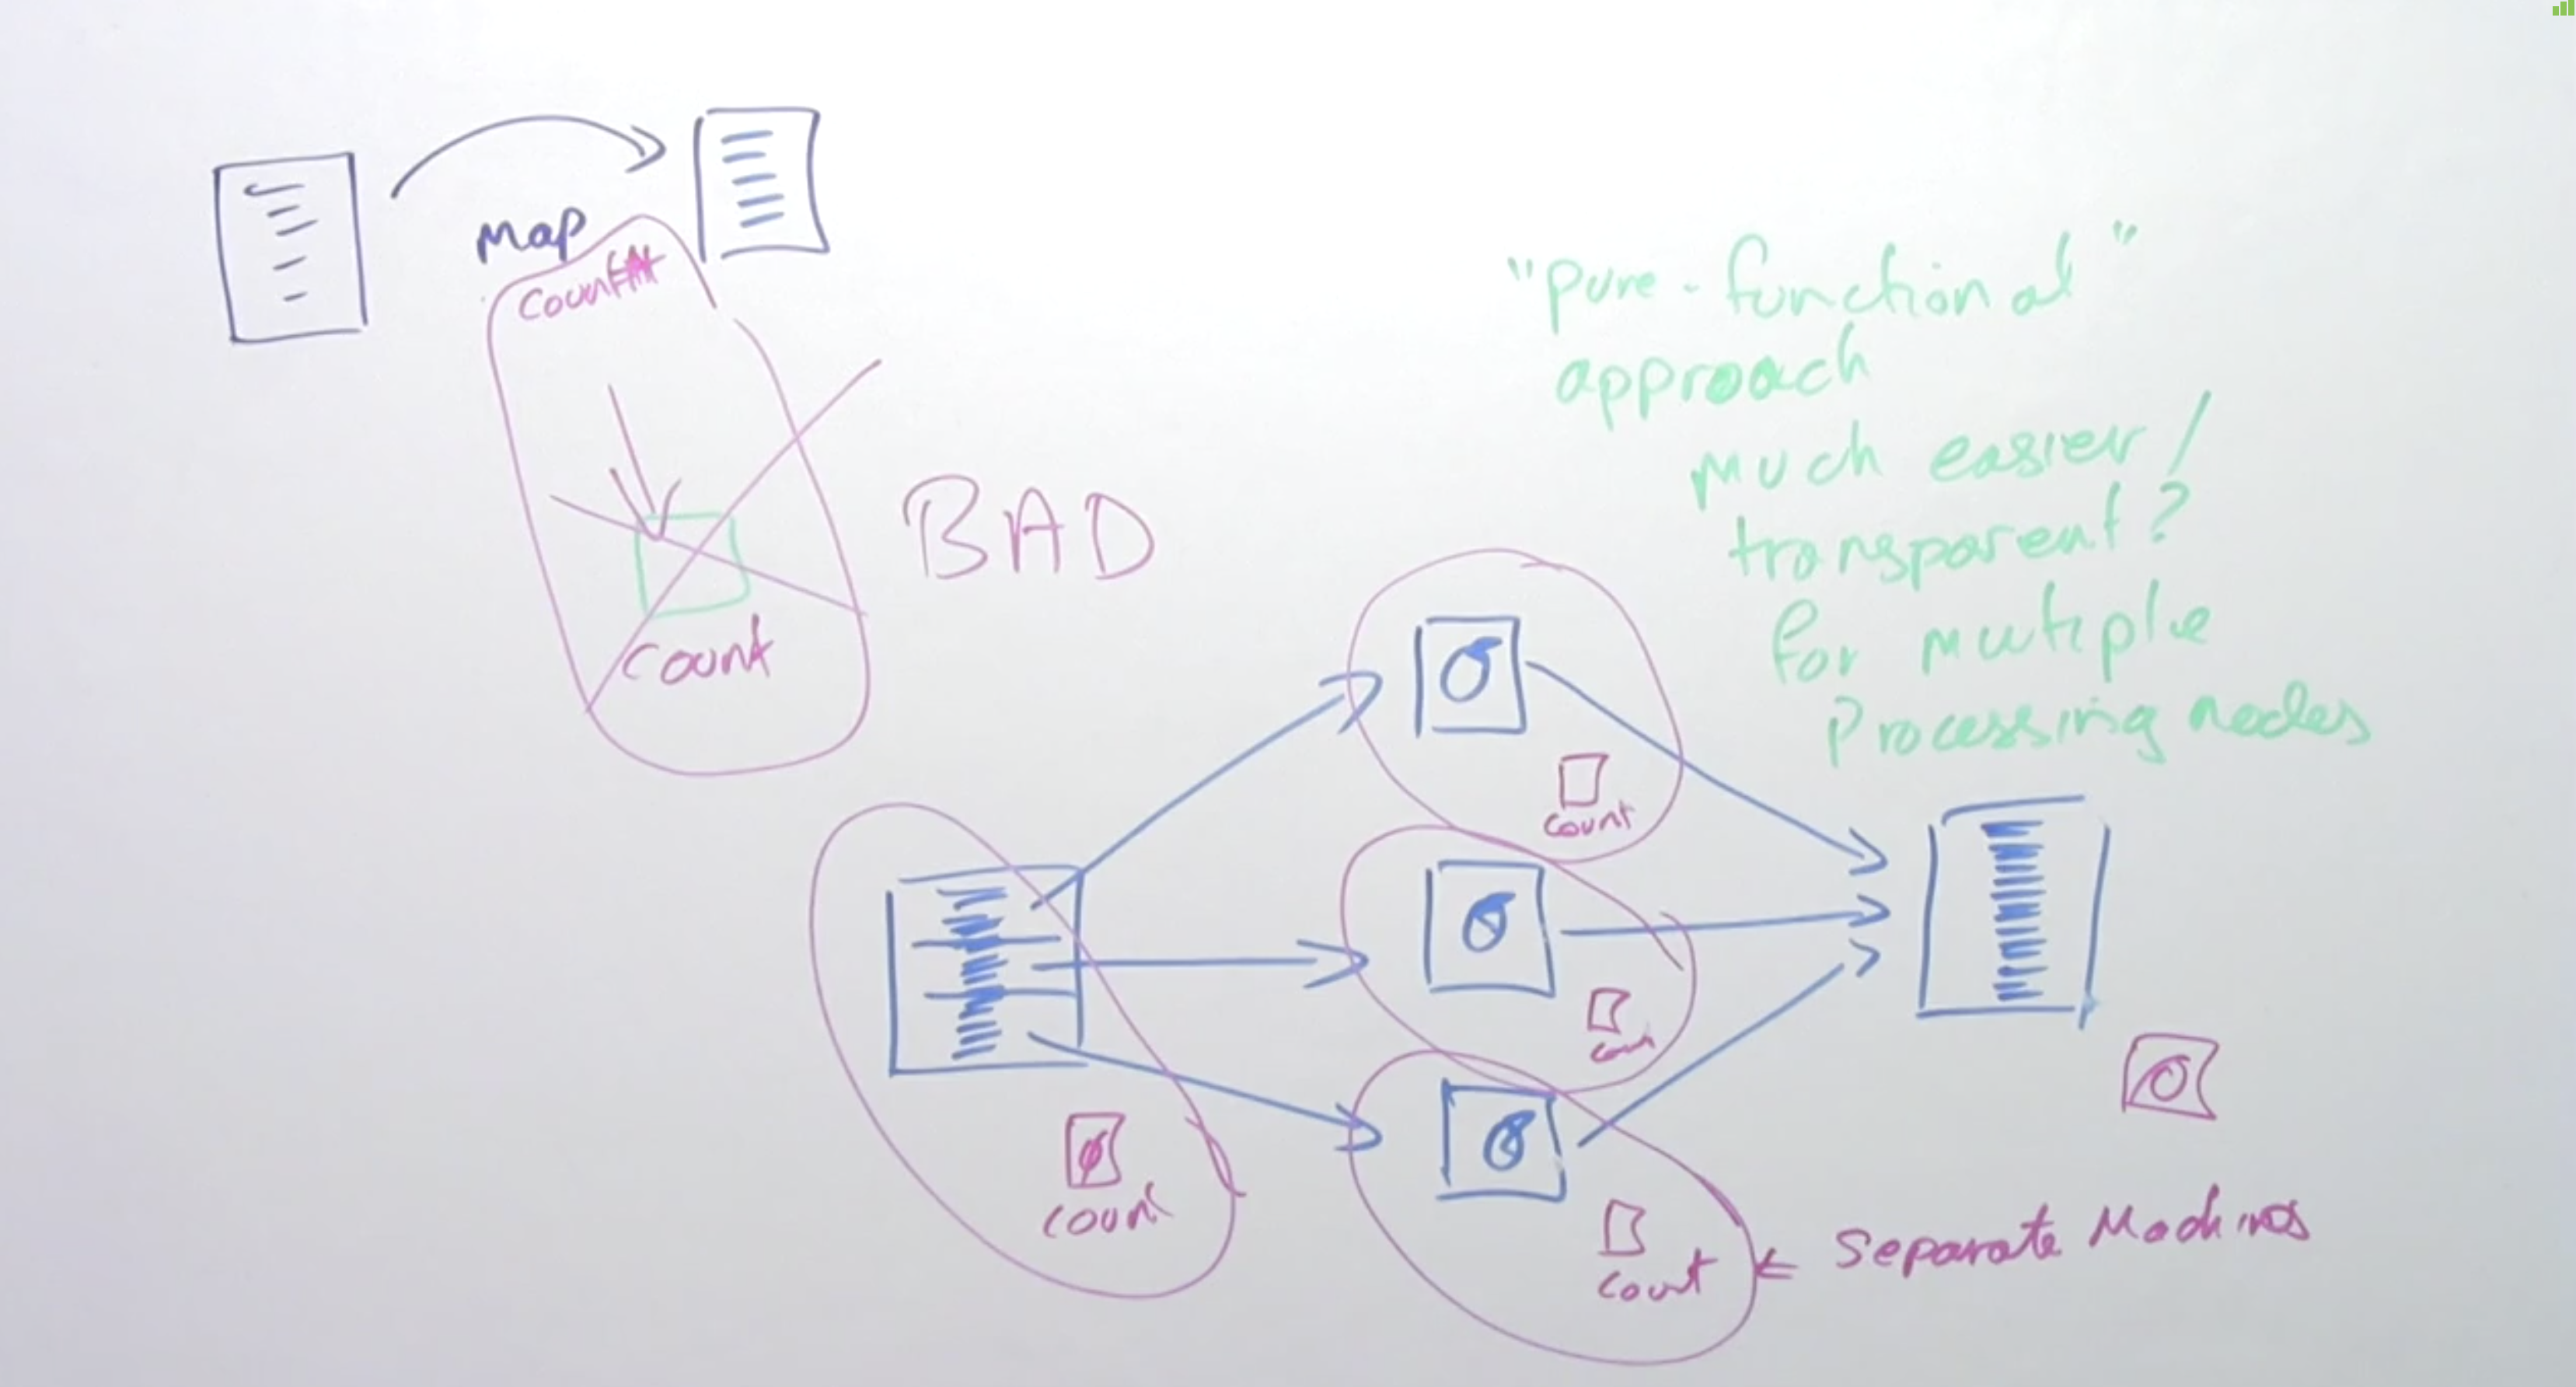 Map
Count++
count
BAD
"Pure-functional"
approach
Much easier/
transparent?
for multiple
Processing nodes
count
coun
count
count
Separate Machines